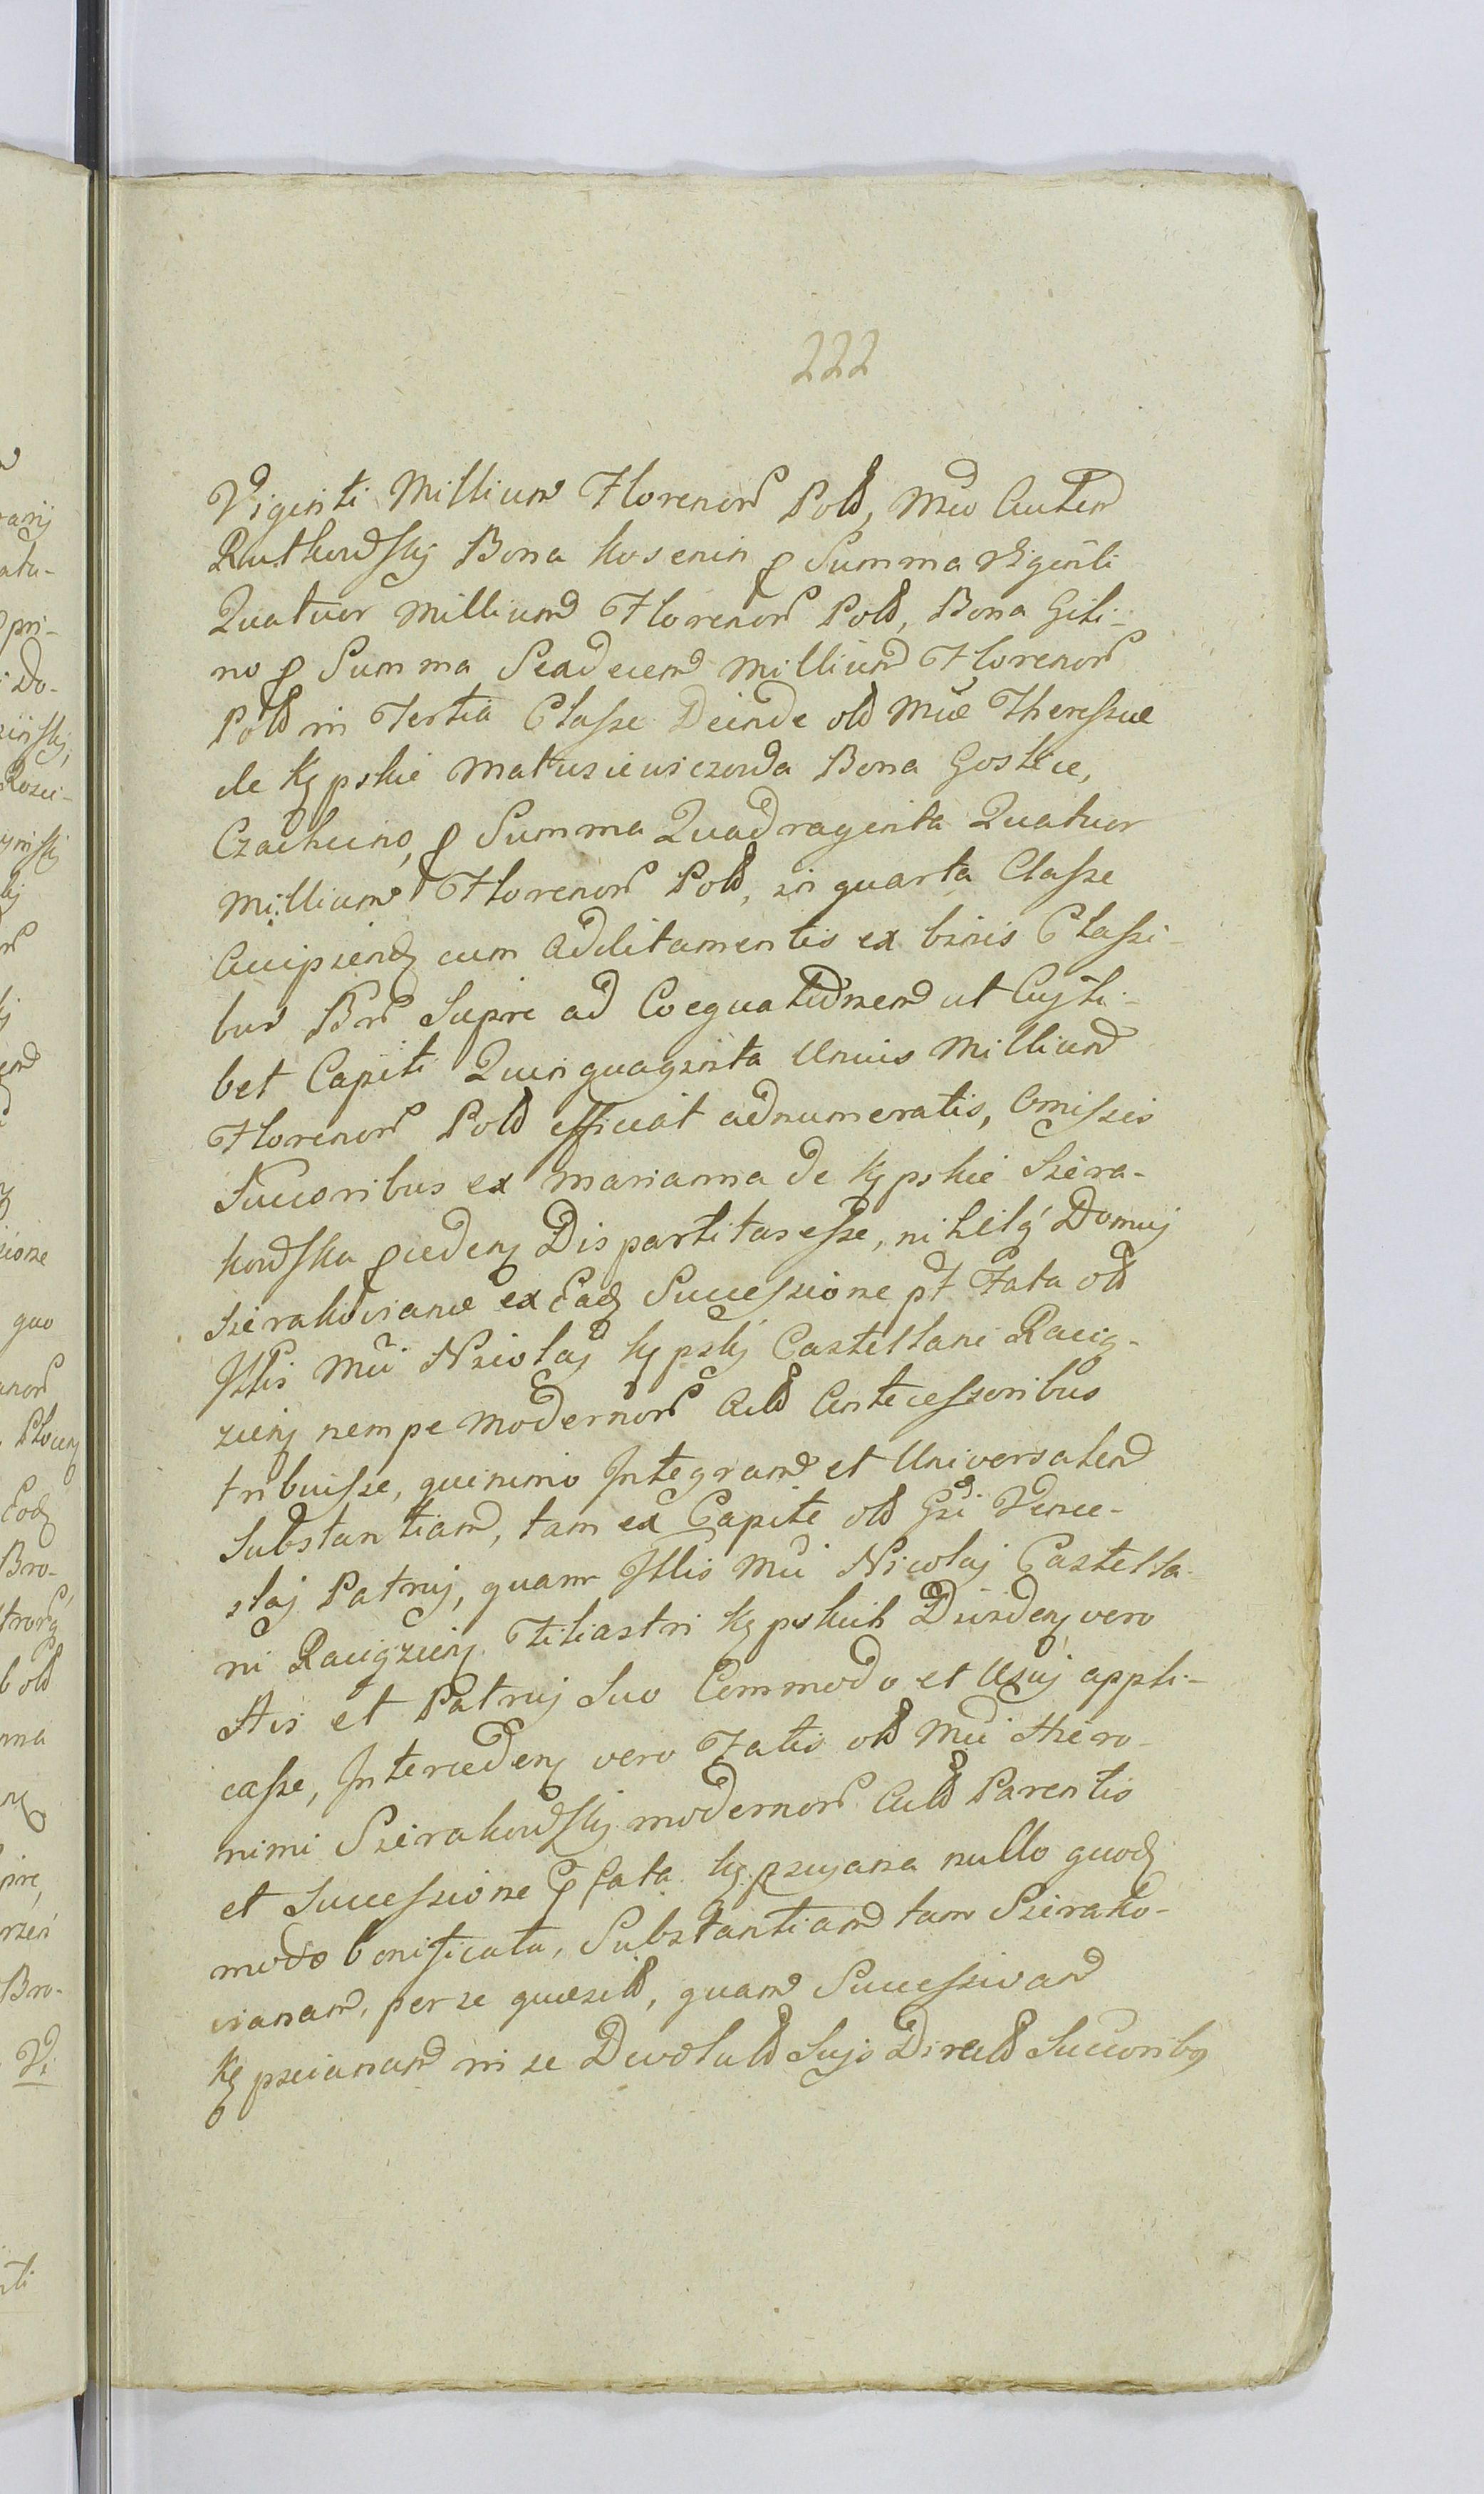 222
Viginti Millium Florenor Pold, Mco Autem
Rutkowskj Bona Kosemin p Summa Viginti
Quatuor Millium Florenor Pold, Bona Giti-
no p Summa Sexdecem Millium Florenor
Pold in Tertia Classe Deinde old Mcæ Theressæ
de Kępskie Matusiewiczowa Bona Goslice,
Czachcino, p Summa Quadraginta Quatuor
Millium Florenor Pold, in quarta Classe
Accipiend cum Additamentis ex binis Classi-
bus Bnr Supre ad Coequationem ut Cujli-
bet Capiti Quinquaginta Unius Millium
Florenor Pold efficiat adnumeratis, Omissis
Succoribus ex Marianna de Kępskie Siera-
kowska pceden Dispartitas esse, nihilq Domuj
Sierakoviane ex Eadq Successione pt Fata old
Jllis Mci Nicolaj Kępskj Castellani Raciq-
zien nempe modernor Actd Antecessoribus
tribuisse, quinimo Jntegram et Universalem
Substantiam, tam ex Capite old Gsi Vence-
slaj Patruj, quam Jllis Mci Nicolaj Castella-
ni Raciqzien Filiastri Kępskich Dividen vero
Stis et Patruj Suo Commodo et Usuj appli-
casse, Jnterceden vero Fatis old Mci Hiero-
nimi Sierakowskj modernor Actd Parentis
et Successione p fata Kępsciana nullo quodq
modo bonificata, Substantiam tam Sierako-
vianam, per se quæsitd, quam Successivam
Kępscianam in se Devolutd Sujs Directd Succoribq